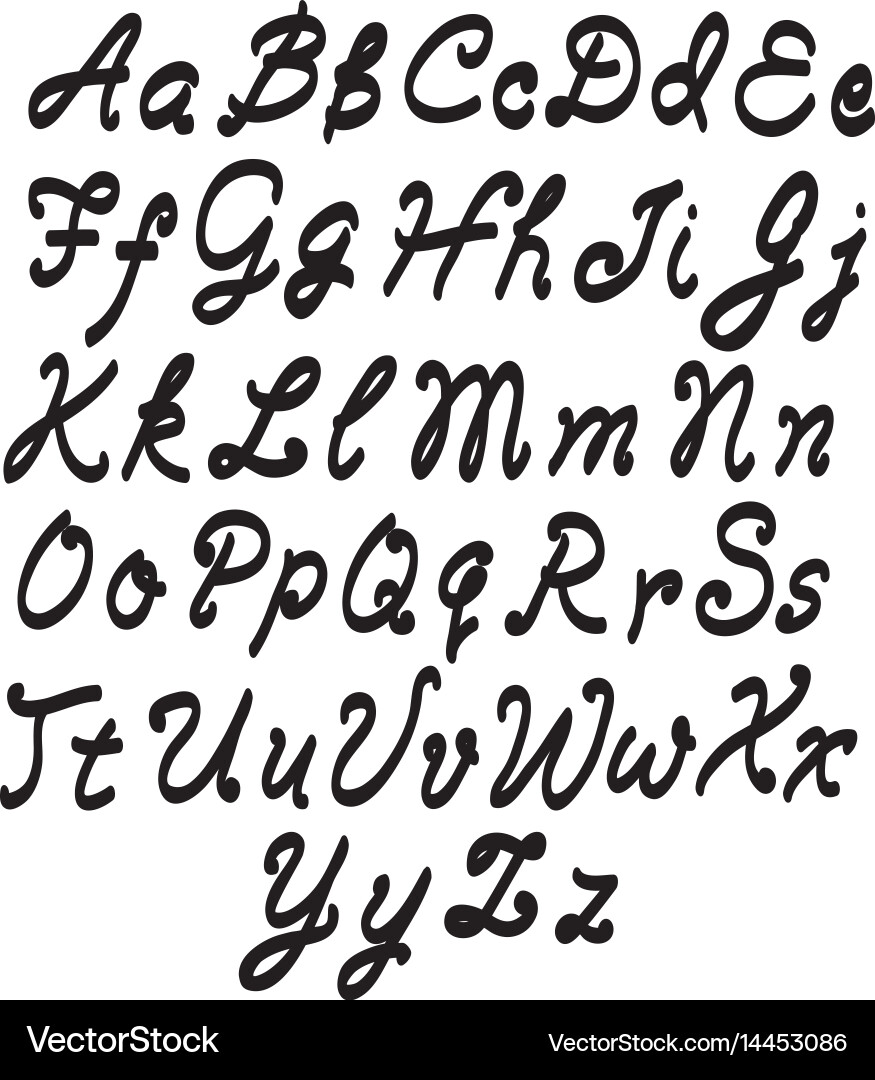 Aa Bb Cc Dd Ee
Ff Gg Hh Ii Jj
Kk Ll Mm Nn
Oo Pp Qq Rr Ss
Tt Uu Vv Ww Xx
Yy Zz
VectorStock® VectorStock.com/14453086